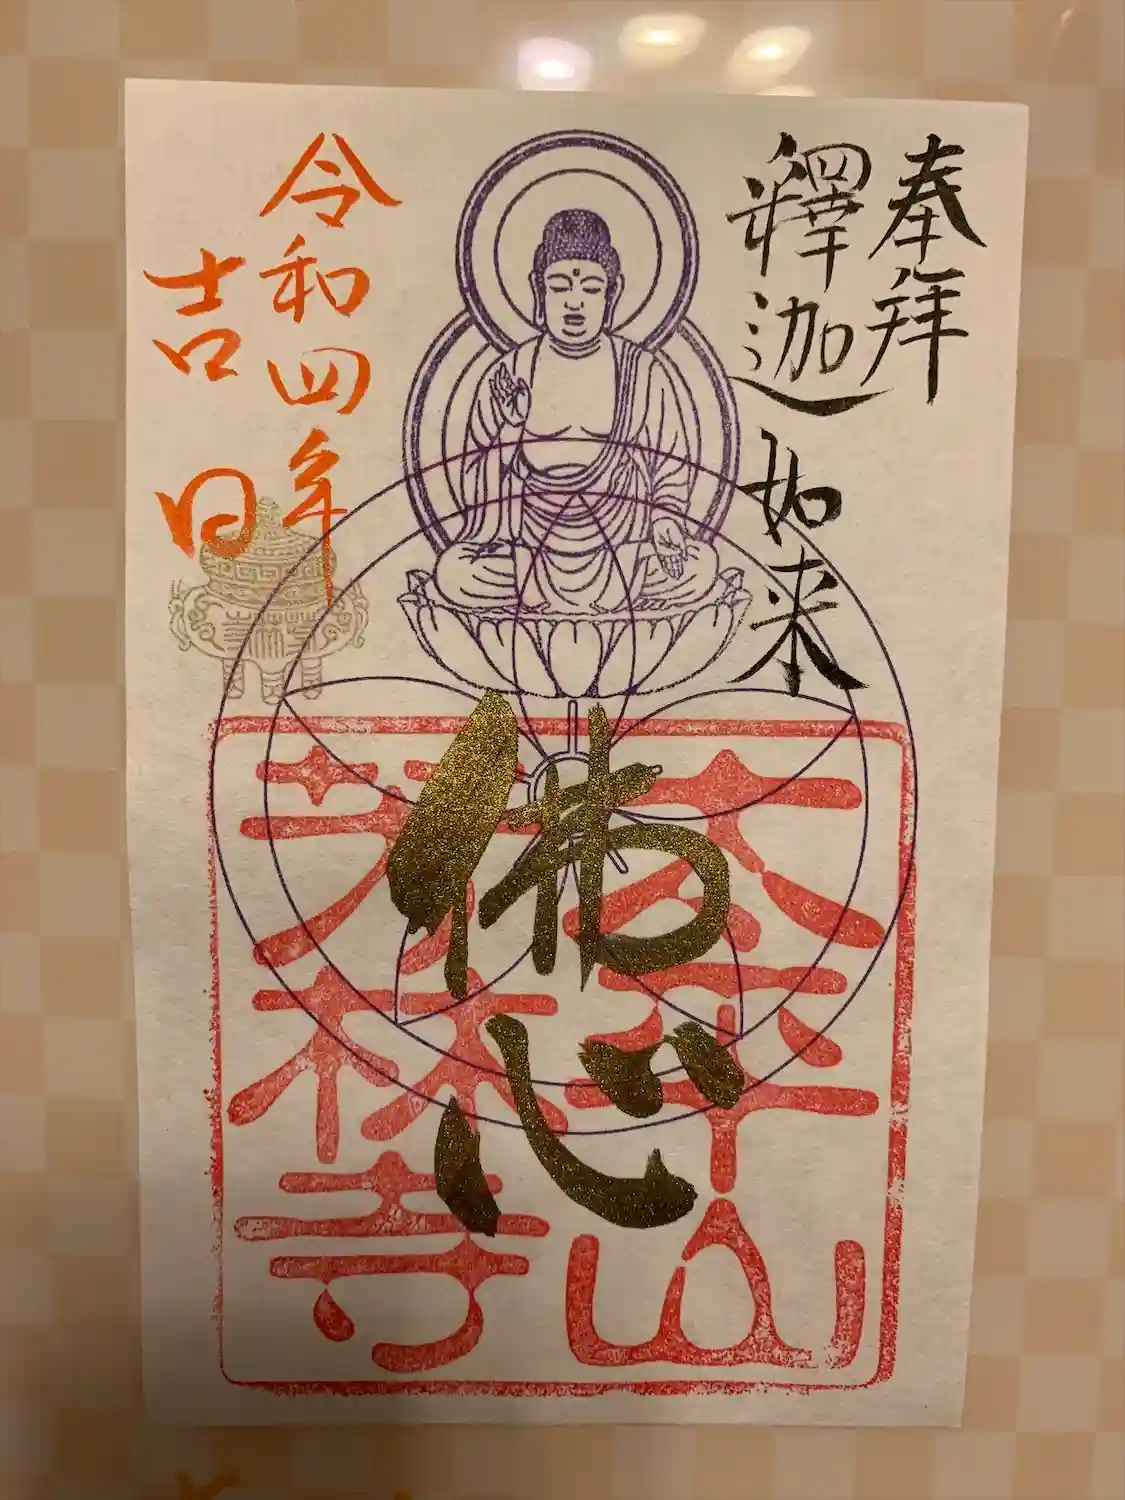 奉拝
釋迦如来
佛心
太平山
芳林寺
令和四年
吉日